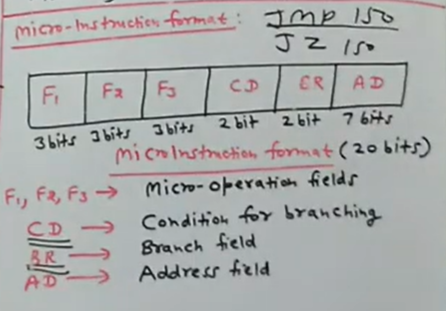 Micro-Instruction format: JMP 150
JZ 150
F1 F2 F3 CD BR AD
3bits 3bits 3bits 2bit 2bit 7bits
MicroInstruction format (20bits)
F1, F2, F3 → Micro-operation fields
CD → Condition for branching
BR → Branch field
AD → Address field